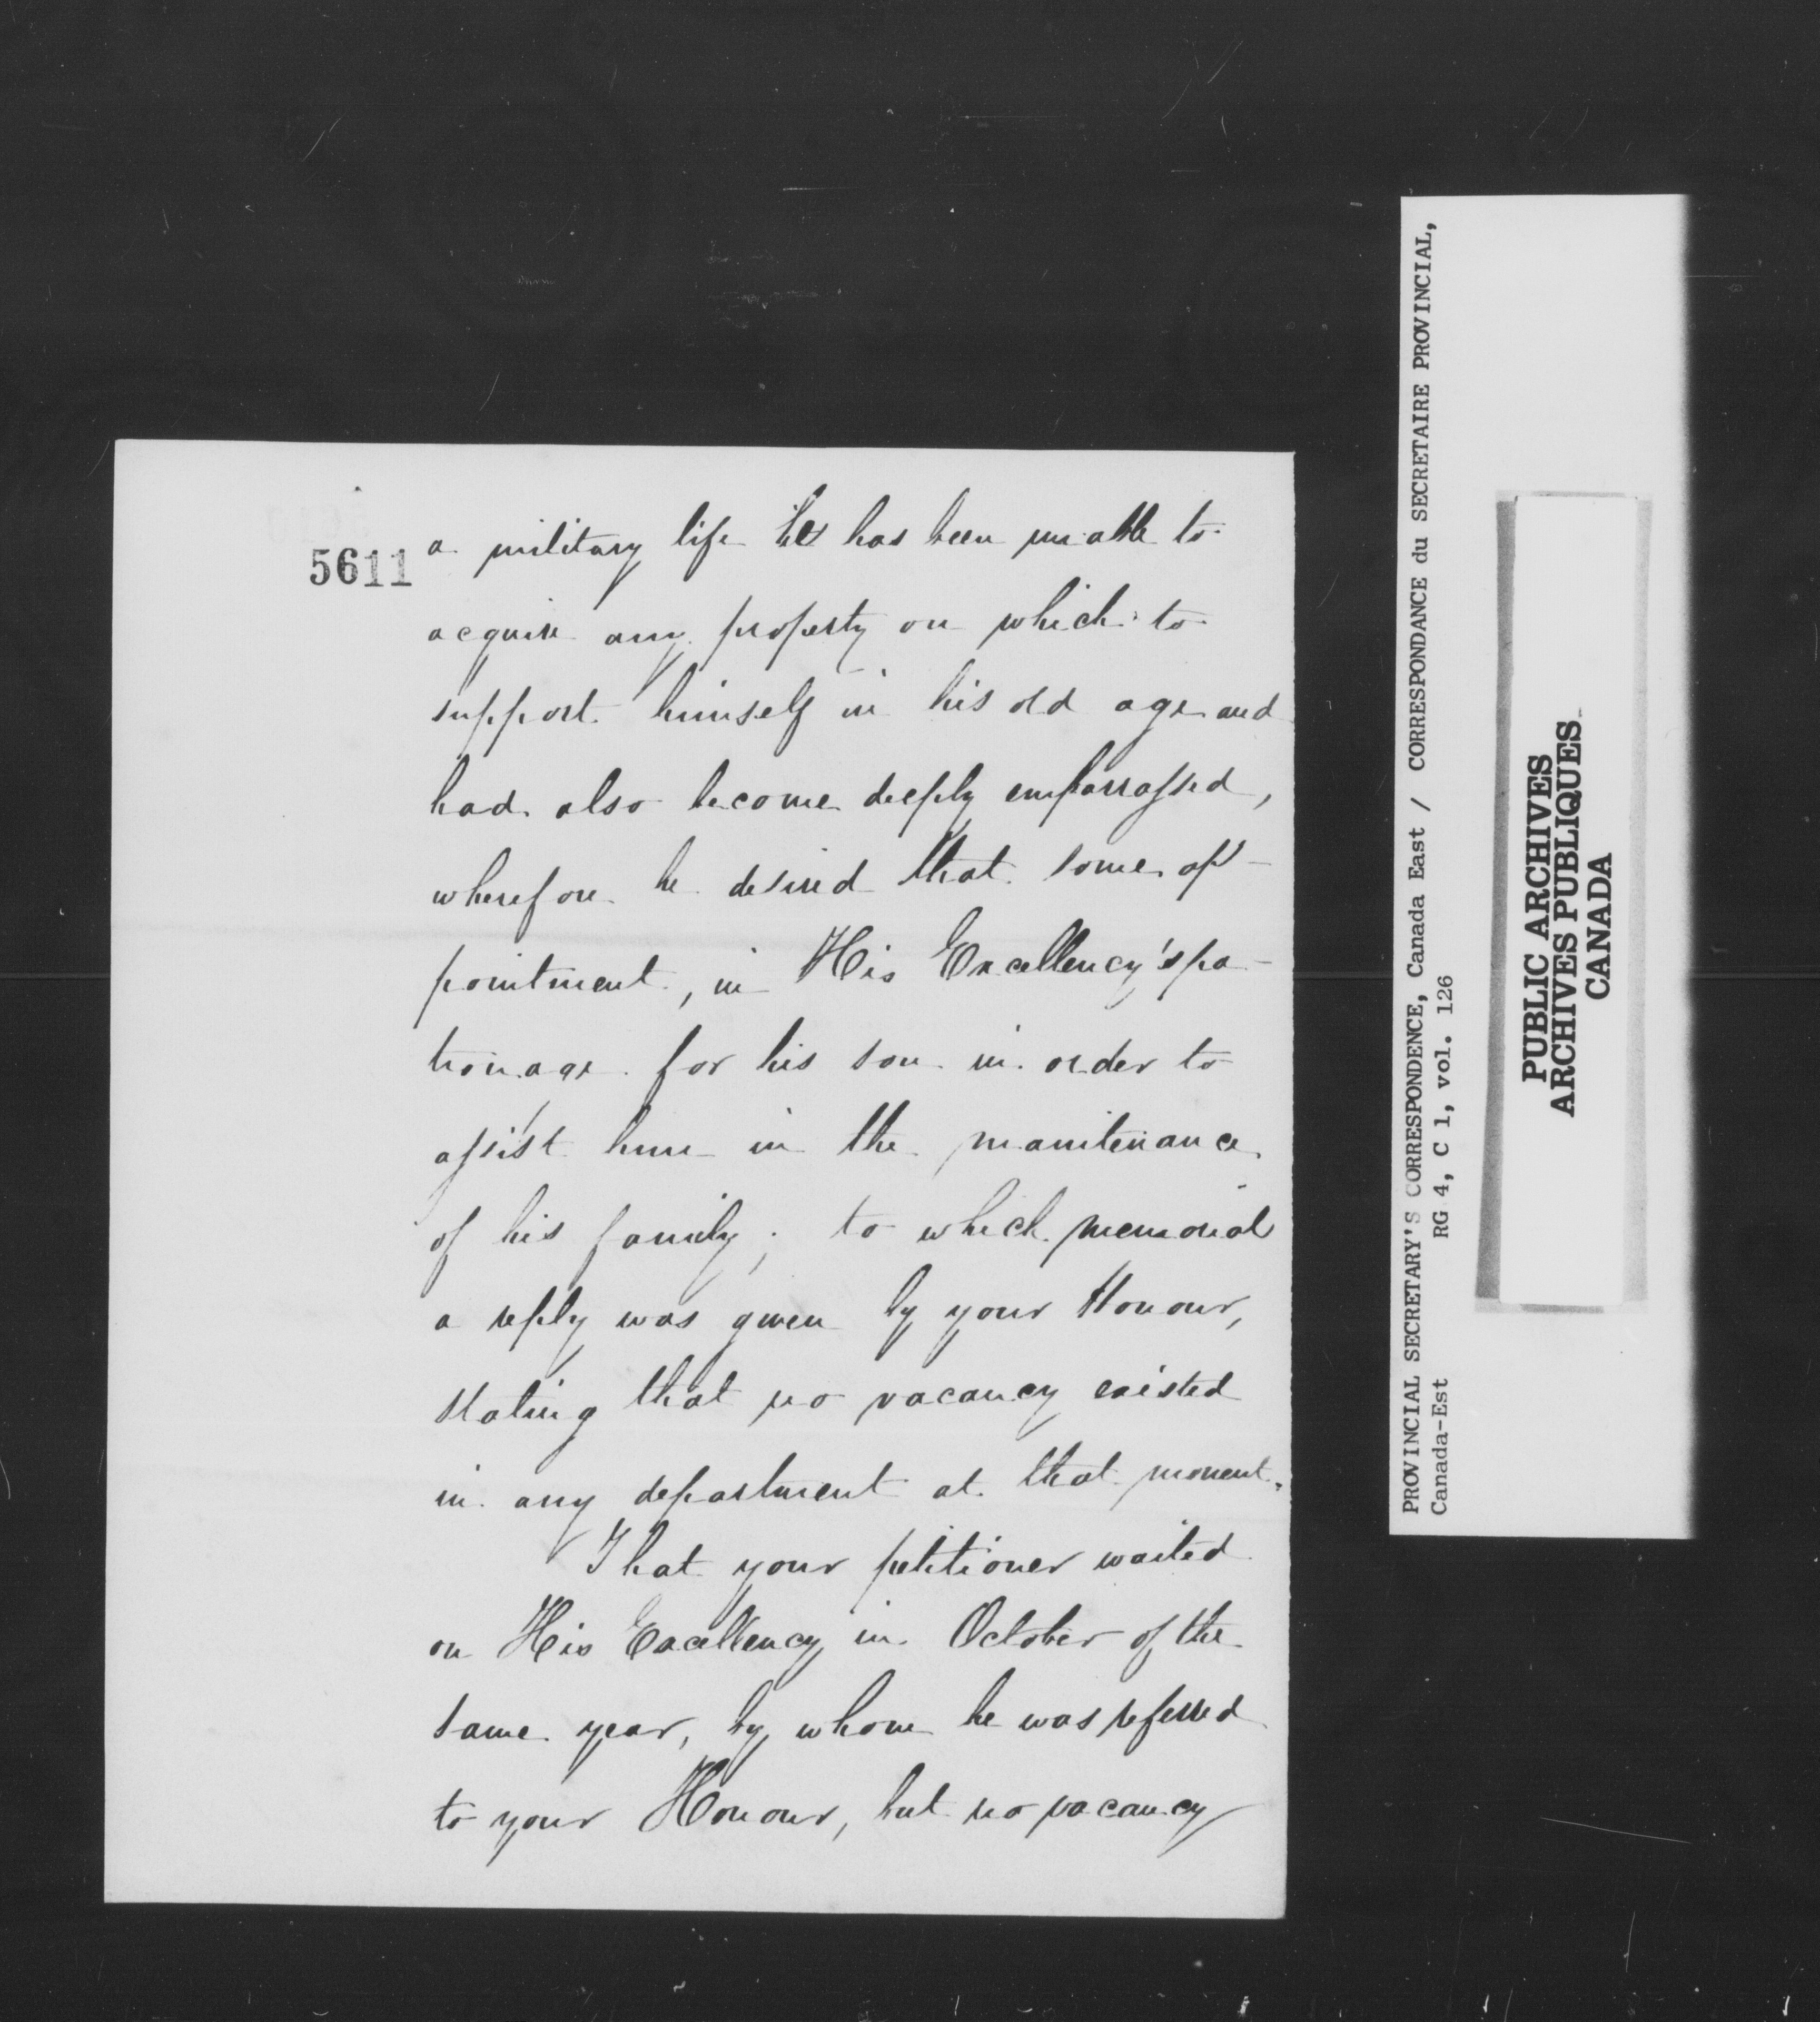 5611
a military life he has been unable to
acquire any property on which to
support himself in his old age and
had also become deeply embarrassed,
wherefore he desired that some ap-
pointment, in His Excellency's pa-
tronage for his son in order to
assist him in the maintenance
of his family; to which memorial
a reply was given by your Honour,
stating that no vacancy existed
in any department at that moment.
That your petitioner waited
on His Excellency in October of the
same year, by whom he was referred
to your Honour, but no vacancy
PROVINCIAL SECRETARY'S CORRESPONDENCE, Canada East / CORRESPONDANCE du SECRETAIRE PROVINCIAL,
Canada-Est RG 4, C 1, vol. 126
PUBLIC ARCHIVES
ARCHIVES PUBLIQUES
CANADA